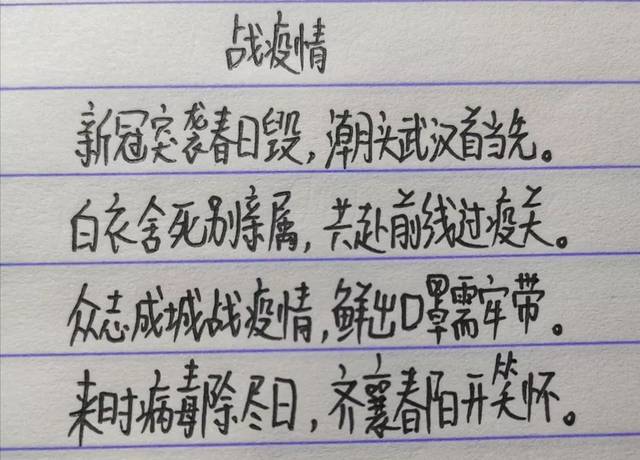 战疫情
新冠突袭春日毁，潮头武汉首当先。
白衣舍死别亲属，共赴前线过疫关。
众志成城战疫情，鲜出口罩需牢带。
来时病毒除尽日，齐襄春阳开笑怀。